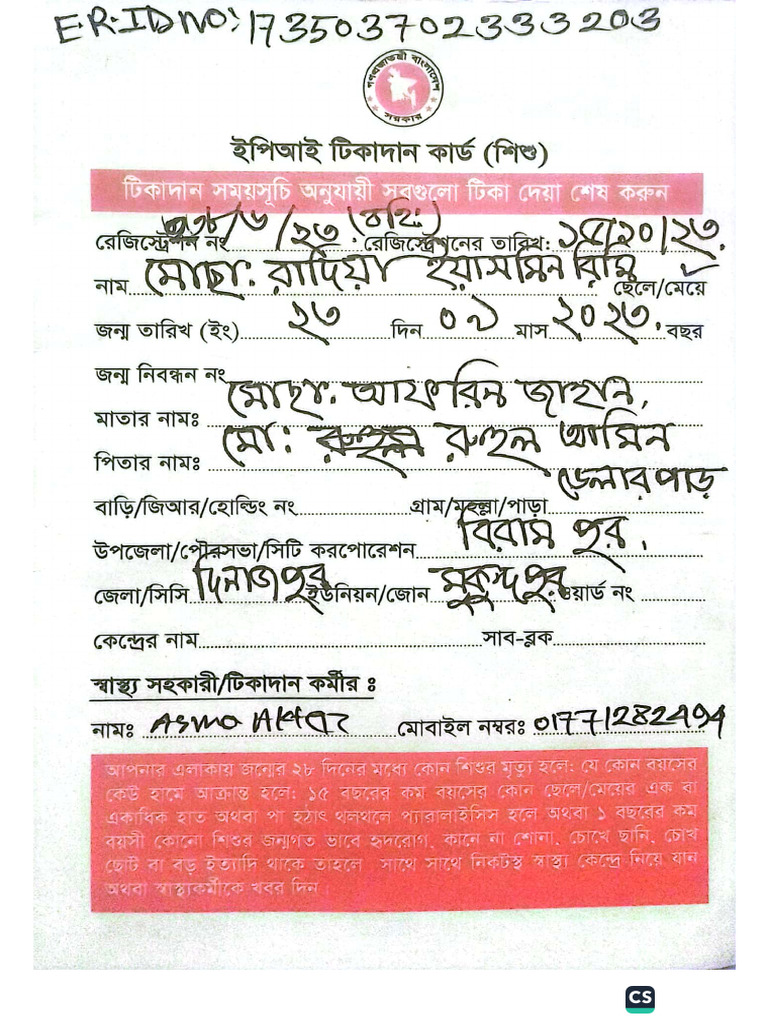 E.R.ID NO: 173503702333203
গণপ্রজাতন্ত্রী বাংলাদেশ
সরকার
ইপিআই টিকাদান কার্ড (শিশু)
টিকাদান সময়সূচি অনুযায়ী সবগুলো টিকা দেয়া শেষ করুন
রেজিস্ট্রেশন নং /২৩ (বহিঃ) রেজিস্ট্রেশনের তারিখ: ১৫/১০/২৩.
নাম মোছা: রাদিয়া ইয়াসমিন রিমি ছেলে/মেয়ে
জন্ম তারিখ (ইং) ২৩ দিন ০৯ মাস ২০২৩. বছর
জন্ম নিবন্ধন নং
মাতার নামঃ মোছা: আফরিন জাহান,
পিতার নামঃ মো: রুহুল আমিন
বাড়ি/জিআর/হোল্ডিং নং গ্রাম/মহল্লা/পাড়া ভেলারপাড়
উপজেলা/পৌরসভা/সিটি করপোরেশন বিরামপুর,
জেলা/সিসি দিনাজপুর ইউনিয়ন/জোন মুকুন্দপুর ওয়ার্ড নং
কেন্দ্রের নাম সাব-ব্লক
স্বাস্থ্য সহকারী/টিকাদান কর্মীর ঃ
নামঃ ASMA AKtar মোবাইল নম্বরঃ 01771282494
আপনার এলাকায় জন্মের ২৮ দিনের মধ্যে কোন শিশুর মৃত্যু হলে: যে কোন বয়সের
কেউ হামে আক্রান্ত হলে: ১৫ বছরের কম বয়সের কোন ছেলে/মেয়ের এক বা
একাধিক হাত অথবা পা হঠাৎ থলথলে প্যারালাইসিস হলে অথবা ১ বছরের কম
বয়সী কোনো শিশুর জন্মগত ভাবে হৃদরোগ, কানে না শোনা, চোখে ছানি, চোখ
ছোট বা বড় ইত্যাদি থাকে তাহলে সাথে সাথে নিকটস্থ স্বাস্থ্য কেন্দ্রে নিয়ে যান
অথবা স্বাস্থ্যকর্মীকে খবর দিন।
CS